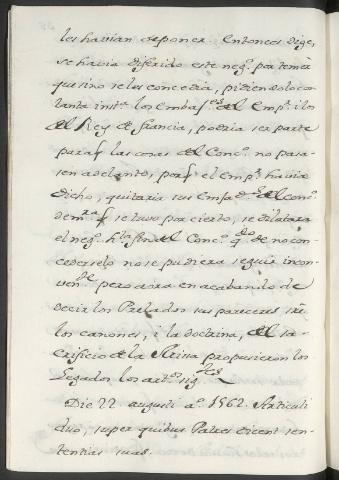 les havian de poner. Entonces dige,
se havia diferido este neg.º por temer
que si no se les concedia, pidiendolo con
tanta inst.ª los Embax.es del Emp.r i los
del Rey de Francia, podria ser parte
para q las cosas del Conc.º no pasa-
sen adelante, porq el Emp.r havia
dicho, quitaria sus Emba.d.es del conc.º
de m.ra q se tuvo por cierto, se dilatara
el neg.º h.ta fin del Conc.º q.do de no con-
cederselo no se pudiera seguir incon-
ven.te pero aora en acabando de
decir los Prelados sus pareceres s.re
los canones, i la doctrina, del sa-
crificio de la Misa propusieron los
Legados los art.os sig.tes
Die 22 augusti a.º 1562. Articuli
duo, super quibus Patres dicent sen-
tentias suas.